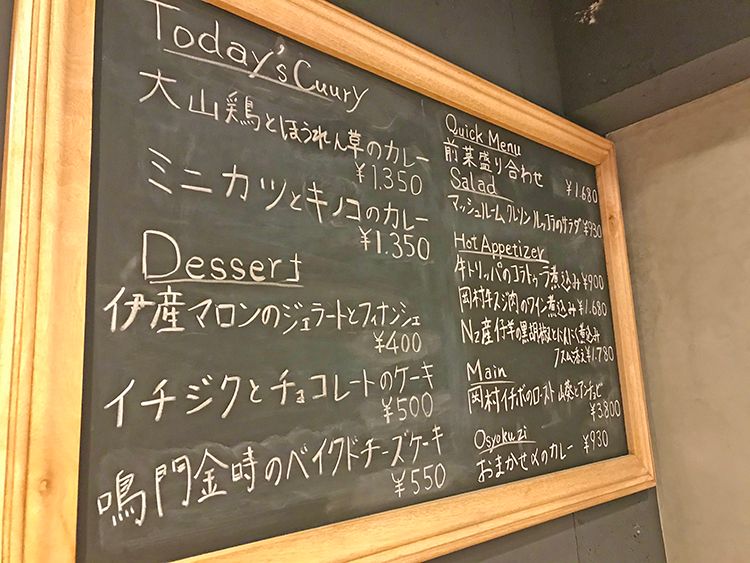 Today's Cuury
大山鶏とほうれん草のカレー
¥1.350
ミニカツとキノコのカレー
¥1.350
Dessert
伊産マロンのジェラートとフィナンシェ
¥400
イチジクとチョコレートのケーキ
¥500
鳴門金時のベイクドチーズケーキ
¥550
Quick Menu
前菜盛り合わせ
¥1.680
Salad
マッシュルーム、クレソン ルッコラのサラダ ¥930
Hot Appetizer
牛トリッパのコラトゥーラ煮込み ¥900
岡村牛スジ肉のワイン煮込み ¥1.680
NZ産仔羊の黒胡椒とにんにく煮込み
クスクス添え ¥1.780
Main
岡村イチボのロースト 山葵とアンチョビ
¥3.800
Osyokuzi
おまかせ〆のカレー ¥930